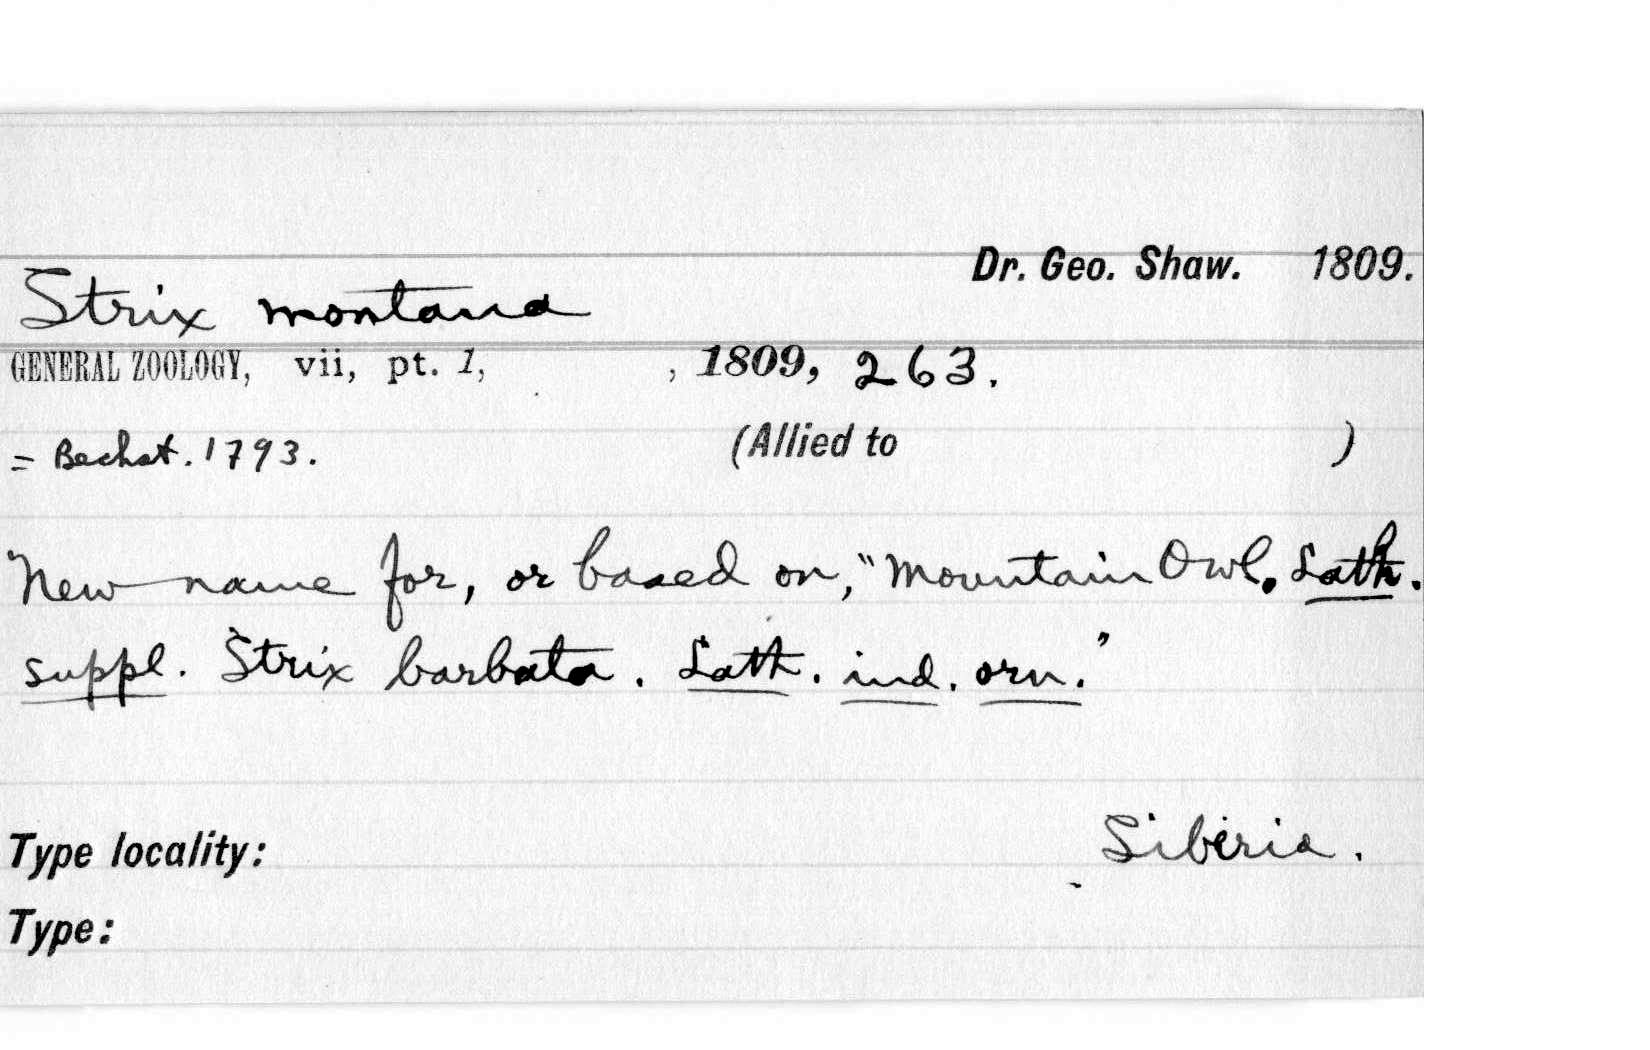 Dr. Geo. Shaw. 1809.
Strix montana
GENERAL ZOOLOGY, vii, pt. 1, , 1809, 263.
= Bechst. 1793. (Allied to )
New name for, or based on, "Mountain Owl. Lath.
suppl. Strix barbata. Lath. ind. orn."
Type locality: Siberia.
Type: